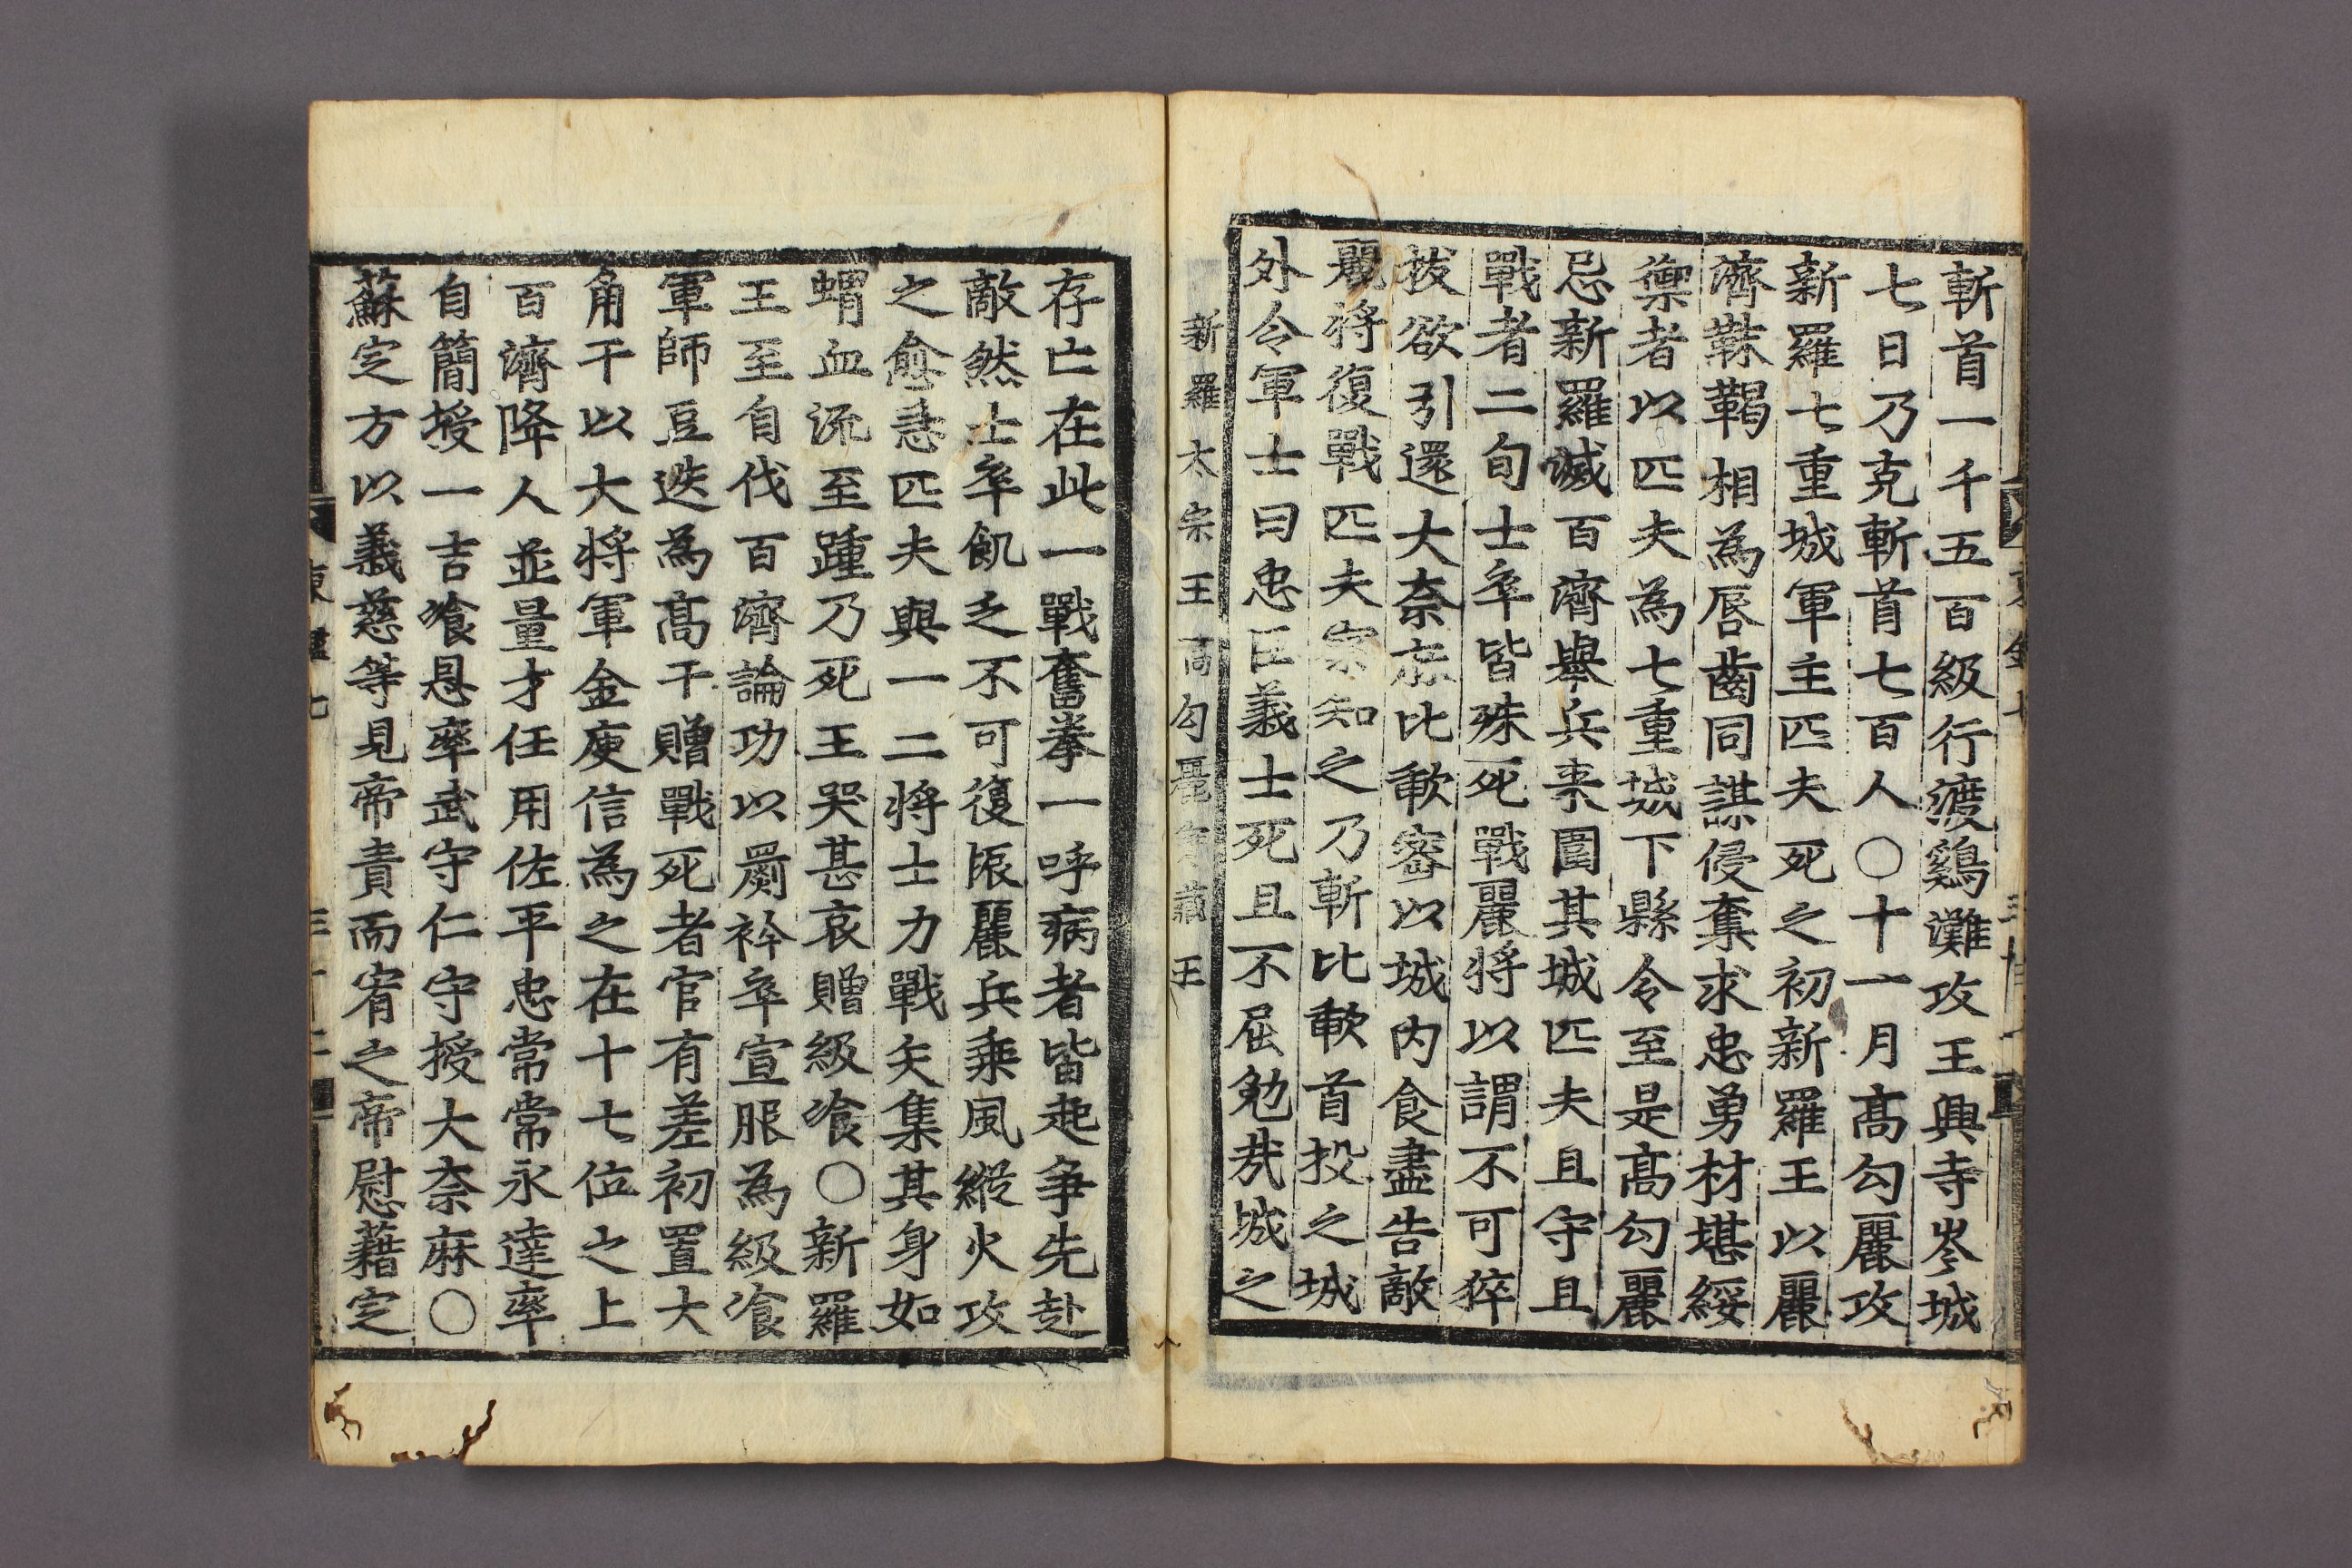 斬首一千五百級行渡鷄灘攻王興寺岑城
七日乃克斬首七百人○十一月髙勾麗攻
新羅七重城軍主匹夫死之初新羅王以麗
濟靺鞨相為唇齒同謀侵奪求忠勇材堪綏
禦者以匹夫為七重城下縣令至是髙勾麗
忌新羅滅百濟舉兵来圍其城匹夫且守且
戰者二旬士卒皆殊死戰麗將以謂不可猝
拔欲引還大奈麻比歃密以城内食盡告敵
麗將復戰匹夫宻知之乃斬比歃首投之城
外令軍士曰忠臣義士死且不屈勉㢤城之
新羅太宗王高勾麗寳藏王
存亡在此一戰奮拳一呼病者皆起爭先赴
敵然士卒飢乏不可復振麗兵乗風縱火攻
之愈急匹夫與一二將士力戰矢集其身如
蝟血流至踵乃死王哭甚哀贈級飡○新羅
王至自伐百濟論功以罽衿卒宣服為級飡
軍師豆迭為髙干贈戰死者官有差初置大
角干以大將軍金庾信為之在十七位之上
百濟降人並量才任用佐平忠常常永達率
自簡授一吉飡恩率武守仁守授大奈麻○
蘇定方以義慈等見帝責而宥之帝慰藉定